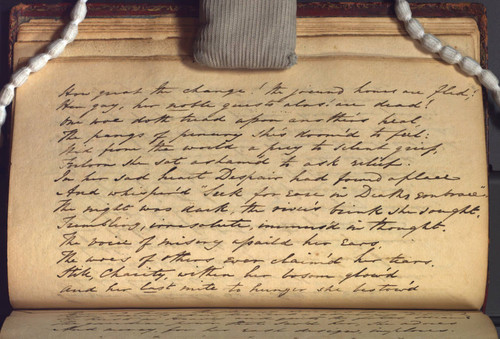 How great the change! the joyous hours are fled;
Her gay, her noble guests alas! are dead!
One woe doth tread upon another's heel,
The pangs of penury she's doom'd to feel:
from the world a prey to silent grief,
she sat ashamed to ask relief.
In her sad heart Despair had found a place
And whisper'd "Seek for ease in Death's embrace"
The night was dark, the river's brink she sought.
Trembling, irresolute, immers'd in thought.
The voice of misery assail'd her Ears,
The woes of others ever claim'd her tears.
Still Charity within her bosom glow'd
And her last mite to hunger she bestow'd